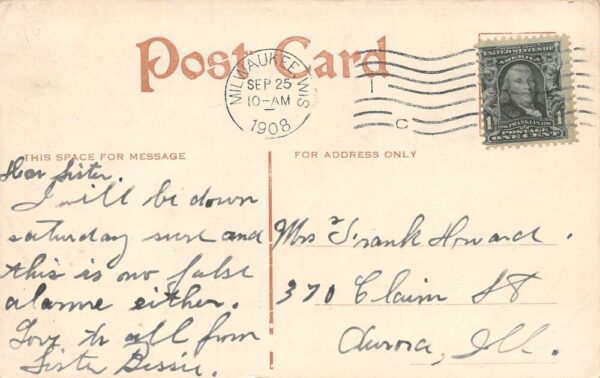 Post Card
MILWAUKEE, WIS.
SEP 25
10-AM
1908
C
UNITED STATES OF
AMERICA
FRANKLIN
POSTAGE
1 ONE CENT 1
THIS SPACE FOR MESSAGE
Dear Sister.
I will be down
saturday sure and
this is no false
alarme either.
Love to all from
Sister Bessie.
FOR ADDRESS ONLY
Mrs Frank Howard.
370 Claim St
Aurora, Ill.